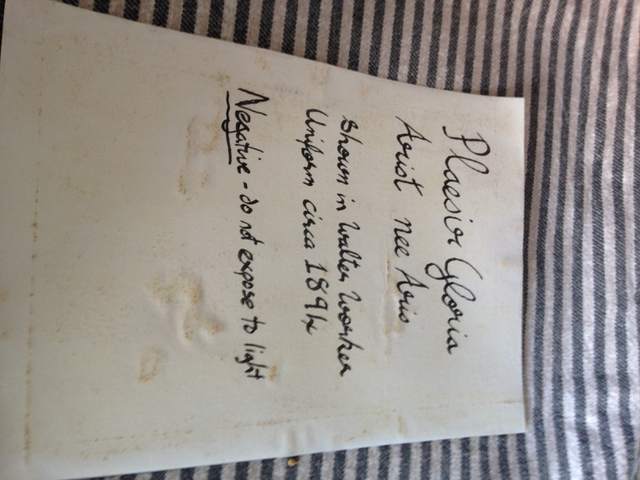 Plaesir Gloria
Arist nee Aris
Shown in Walter Worker
Uniform circa 1894
Negative - do not expose to light